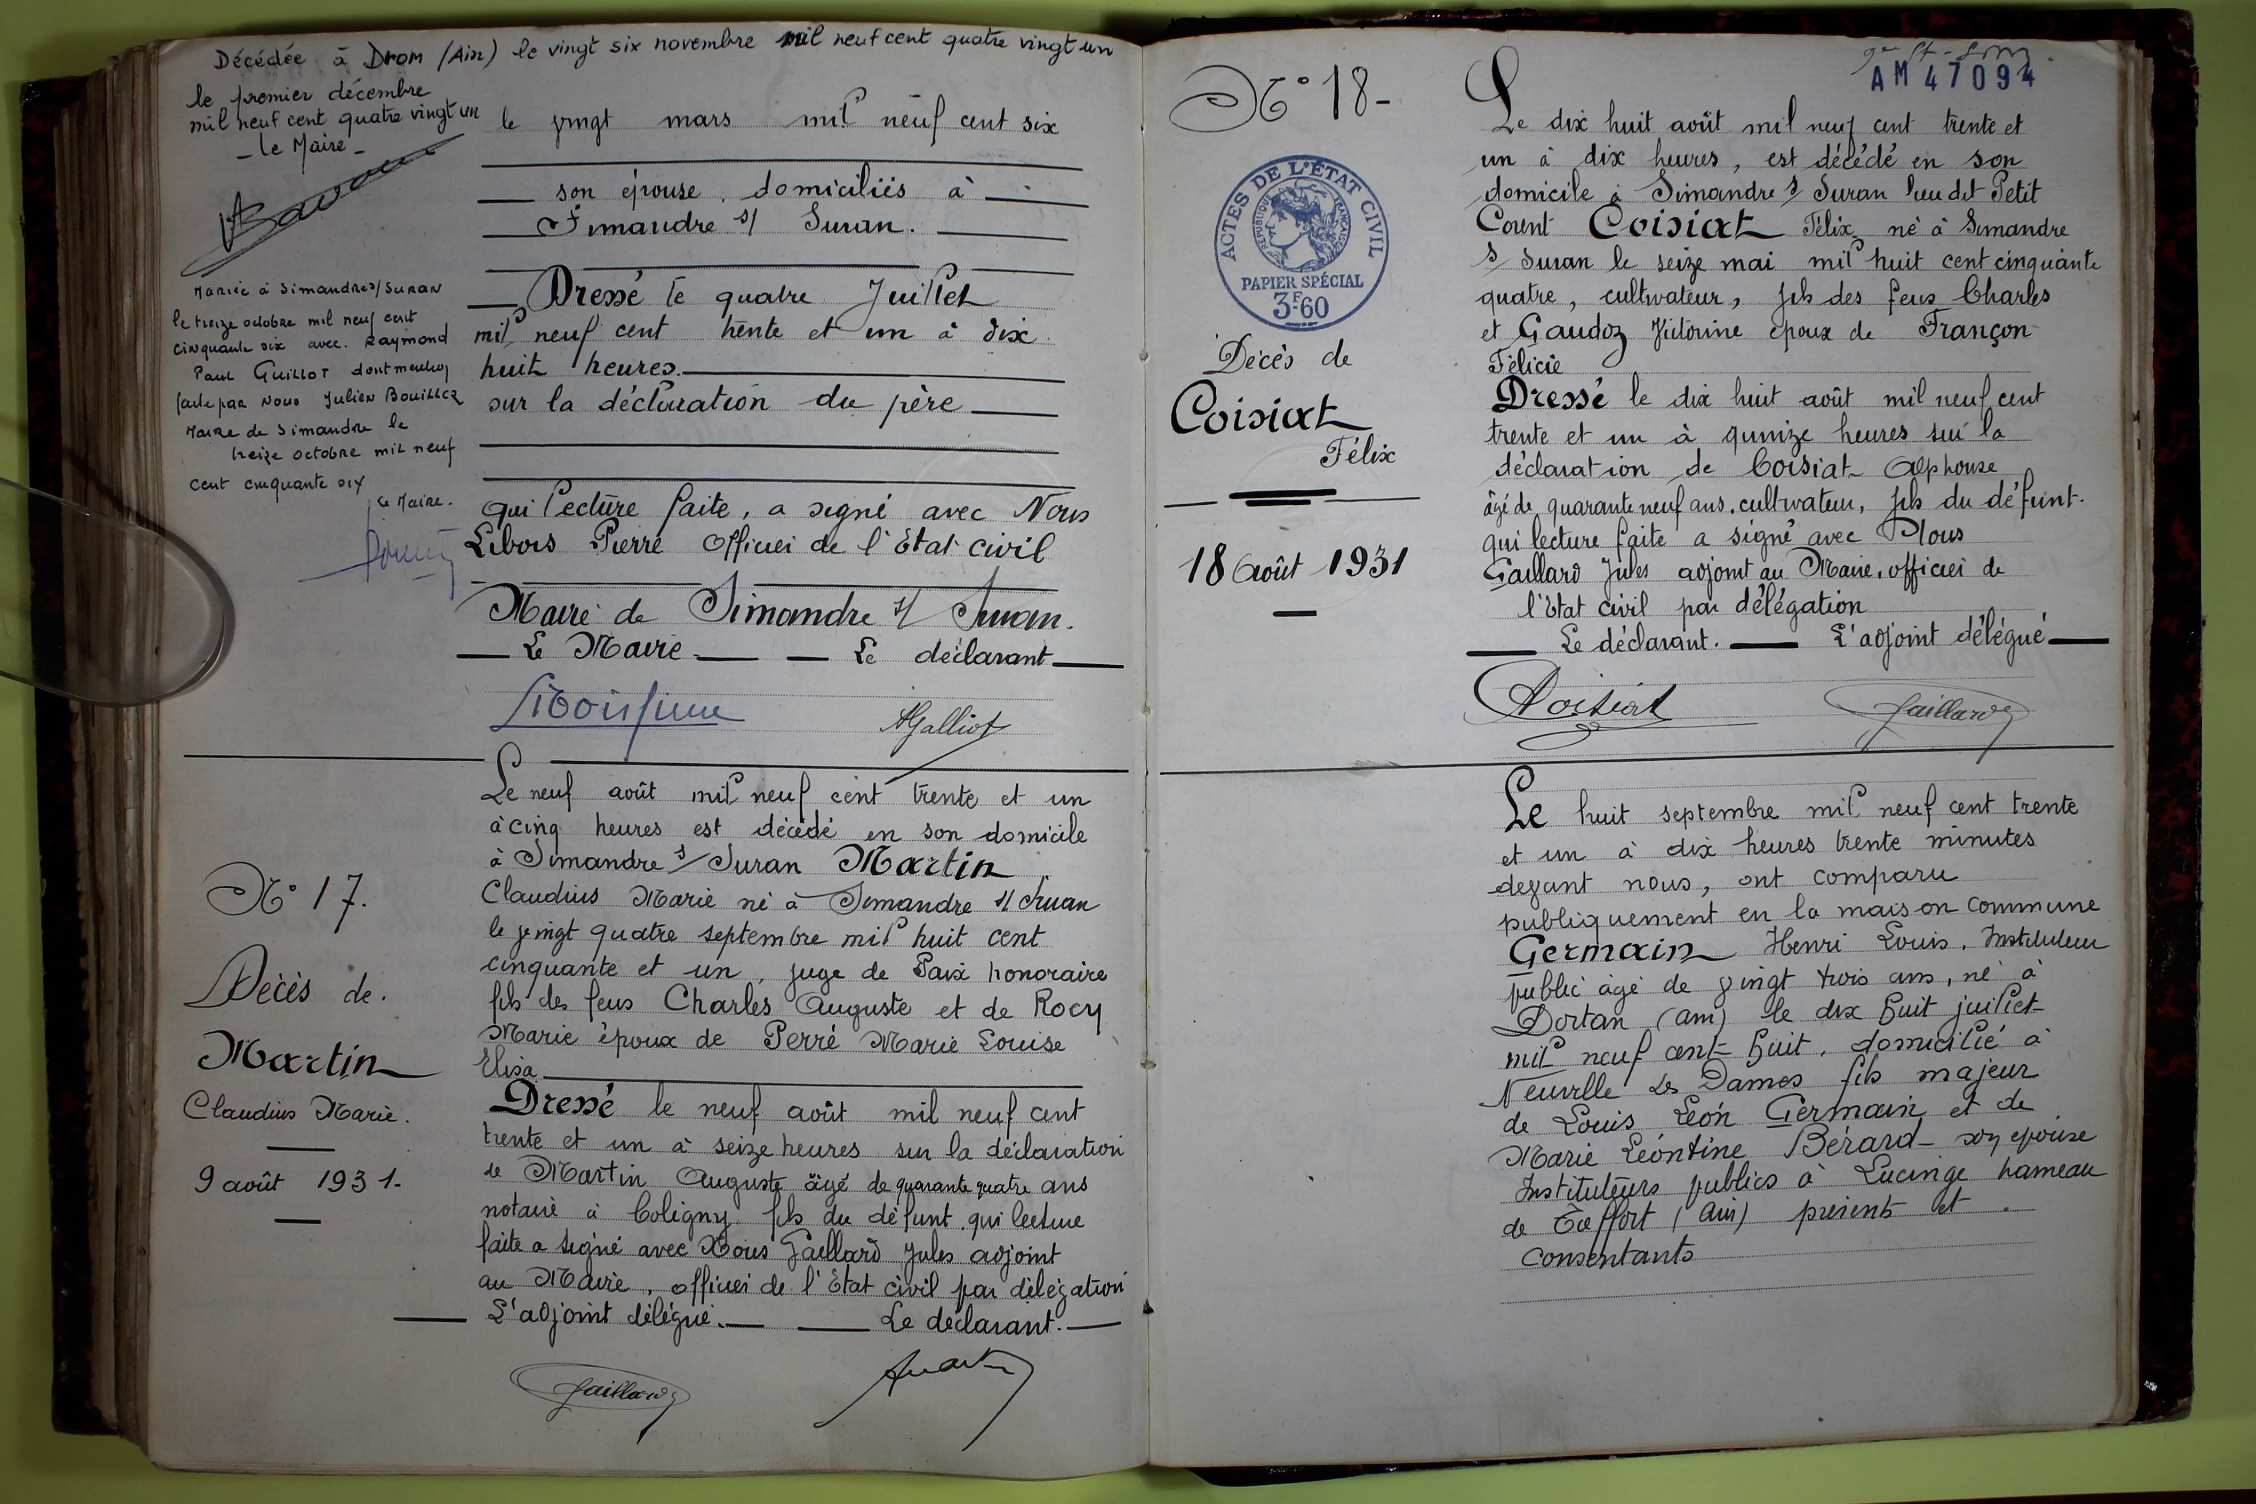 Décédée à Drom (Ain) le vingt six novembre mil neuf cent quatre vingt un
le premier décembre
mil neuf cent quatre vingt un
- le Maire -
Mariée à Simandre s/ Suran
le treize octobre mil neuf cent
cinquante six avec Raymond
Paul Guillot dont mention
faite par nous Julien Bouiller
Maire de Simandre le
treize octobre mil neuf
cent cinquante six
Le Maire.
le vingt mars mil neuf cent six
son épouse, domiciliés à
Simandre s/ Suran.
Dressé le quatre Juillet
mil neuf cent trente et un à dix
huit heures.
sur la déclaration du père
qui lecture faite, a signé avec Nous
Libois Pierre Officier de l'Etat civil
Maire de Simandre s/ Suran.
Le Maire Le déclarant
AGalliot
N° 17.
Décès de.
Martin
Claudius Marie.
9 août 1931-
Le neuf août mil neuf cent trente et un
à cinq heures est décédé en son domicile
à Simandre s/ Suran Martin
Claudius Marie né à Simandre s/ Suran
le vingt quatre septembre mil huit cent
cinquante et un, juge de Paix honoraire
fils des feus Charles Auguste et de Rocy
Marie époux de Perré Marie Louise
Elisa
Dressé le neuf août mil neuf cent
trente et un à seize heures sur la déclaration
de Martin Auguste âgé de quarante quatre ans
notaire à Coligny fils du défunt, qui lecture
faite a signé avec Nous Gaillard Jules adjoint
au Maire, officier de l'Etat civil par délégation
L'adjoint délégué. Le déclarant.
Gaillard
N° 18-
ACTES DE L'ÉTAT CIVIL
RÉPUBLIQUE FRANÇAISE
PAPIER SPÉCIAL
3F-60
Décès de
Coisiat
Félix
18 Août 1931
AM 47094
Le dix huit août mil neuf cent trente et
un à dix heures, est décédé en son
domicile à Simandre s/ Suran lieu dit Petit
Corent Coisiat Félix, né à Simandre
s/ Suran le seize mai mil huit cent cinquante
quatre, cultivateur, fils des feus Charles
et Gaudoz Victorine époux de Françon
Félicie
Dressé le dix huit août mil neuf cent
trente et un à quinize heures sur la
déclaration de Coisiat Alphonse
âgé de quarante neuf ans, cultivateur, fils du défunt.
qui lecture faite a signé avec Nous
Gaillard Jules adjoint au Maire, officier de
l'Etat civil par délégation
Le déclarant. L'adjoint délégué
Coisiat Gaillard
Le huit septembre mil neuf cent trente
et un à dix heures trente minutes
devant nous, ont comparu
publiquement en la maison commune
Germain Henri Louis, Instituteur
public âgé de vingt trois ans, né à
Dortan (Ain) le dix huit juillet
mil neuf cent huit, domicilié à
Neuville les Dames fils majeur
de Louis Léon Germain et de
Marie Léontine Bérard - son épouse
Instituteurs publics à Lucinge hameau
de Treffort (Ain) présents et
consentants